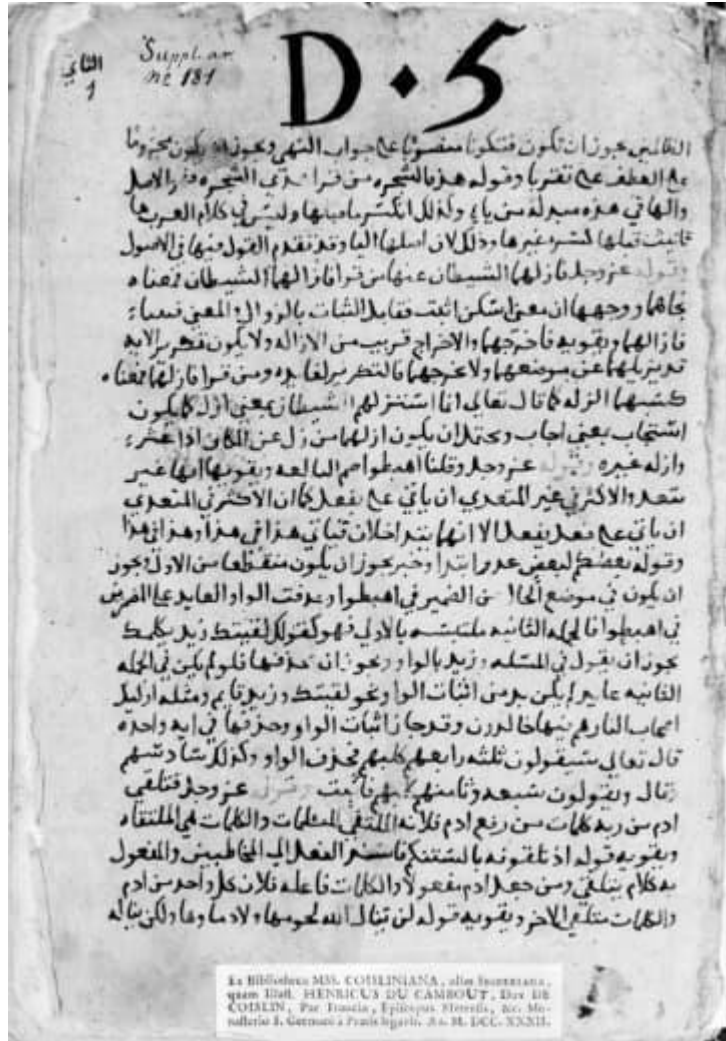 الثاني
1
Suppl. ar
Nº 181
D·5
الظالمين يجوز ان تكون فتكونا منصوبا على جواب النهي ويجوز ان يكون مجزوما
على العطف على تقربا وقوله هذه الشجره من قرا هذي الشجره الاصل
والها في هذه مبدلة من ياء ولذلك انكسر ما قبلها وليس في كلام العرب ها
تانيث قبلها كسره غيرها وذلك لان اصلها اليا وقد تقدم القول فيها في الاصول
وقوله عز وجل فازلهما الشيطان عنها من قرا فازالهما الشيطان فمعناه
نحاهما ووجهها ان معنى اسكن اثبت فقابل الثبات بالزوال المعنى
فازالهما ويقويه فاخرجهما والاخراج قريب من الازاله ولا يكون تكريرا لانه
قد يزيلهما عن موضعهما ولا يخرجهما فالتكرير لفايده ومن قرا فازلهما فمعناه
كسبهما الزله كما قال تعالى انما استزلهم الشيطان بمعنى ازل كما يكون
استجاب بمعنى اجاب ويحتمل ان يكون ازلهما من زل عن المكان اذا عثر
وازله غيره وقوله عز وجل وقلنا اهبطوا ضم الباء لغه ويقويها انها غير
متعد والاكثر في غير المتعدي ان ياتي على يفعل كما ان الاكثر في المتعدي
ان ياتي على فعل يفعل الا انهما يتداخلان فياتي هذا في هذا وهذا في هذا
وقوله بعضكم لبعض عدو ابتدا وخبر يجوز ان يكون منقطعا من الاول ويجوز
ان يكون في موضع الحال من الضمير في اهبطوا وحذفت الواو والعايد على المضمر
في اهبطوا فالجمله الثانيه ملتبسه بالاولى فهو كقولك لقيتك زيد يكلمك
يجوز ان يقول في المسله وزيد بالواو ويجوز ان تحذفها فلو لم يكن في الجمله
الثانيه عايد لم يكن بد من اثبات الواو نحو لقيتك وزيد قايم ومثله اوليك
اصحاب النار هم فيها خالدون وقد جاز اثبات الواو وحذفها في ايه واحده
قال تعالى سيقولون ثلثه رابعهم كلبهم بحذف الواو وكذلك سادسهم
وقال ويقولون سبعه وثامنهم كلبهم فاثبت وقوله عز وجل فتلقى
ادم من ربه كلمات من رفع ادم فلانه المتلقي للكلمات والكلمات هي الملتقاه
ويقويه قوله اذ تلقونه بالسنتكم فاسند الفعل الى المخاطبين والمفعول
به كلام يتلقى ومن جعل ادم مفعولا والكلمات فاعله فلان كل واحد من ادم
والكلمات متلقي الاخر ويقويه قوله لن ينال الله لحومها ولا دماوها ولكن يناله
Ex Bibliotheca MSS. COISLINIANA, olim SEGUERIANA,
quam Illust. HENRICUS DU CAMBOUT, Dux DE
COISLIN, Par Franciæ, Episcopus Metensis, &c. Mo-
nasterio S. Germani à Pratis legavit. An. M. DCC. XXXII.